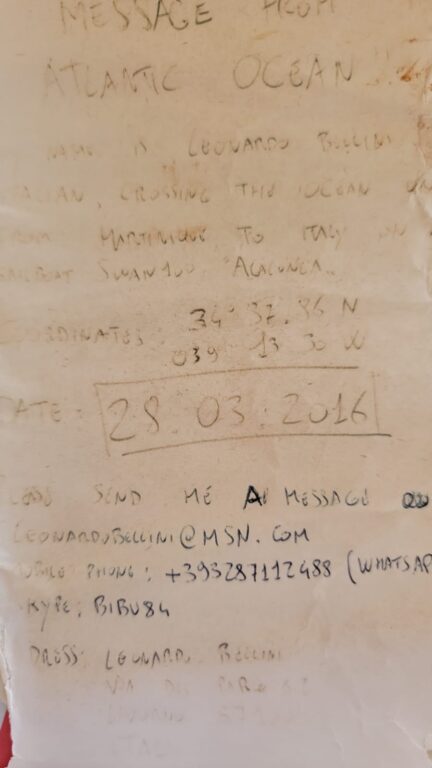 MESSAGE FROM
ATLANTIC OCEAN
NAME IS LEONARDO BELLINI
CROSSING THE OCEAN
MARTINIQUE TO ITALY ON
SWAN100 "ALALUNGA"
34° 37. 36 N
039° 13 30 W
28.03.2016
SEND ME A MESSAGE
LEONARDOBELLINI@MSN.COM
PHONE: +393287112488 (WHATSAP
KYPE: BIBU84
DRESS: LEONARDO BELLINI
VIA